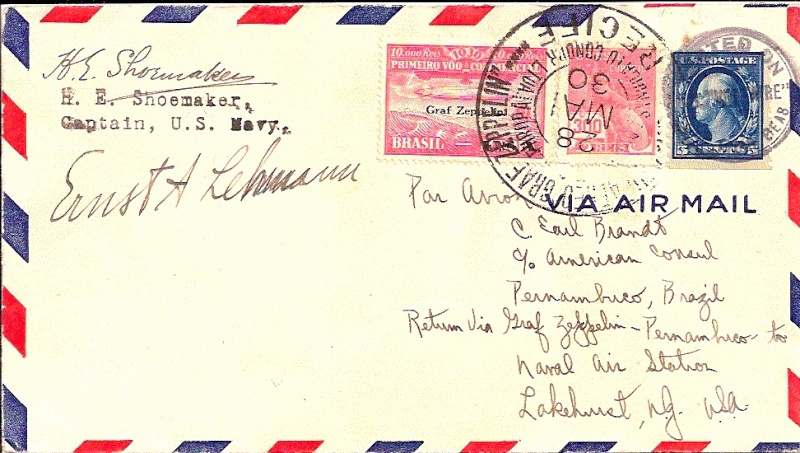 H. E. Shoemaker
H. E. Shoemaker,
Captain, U. S. Navy.
Ernst A Lehmann
10.000 Reis
PRIMEIRO VÔO
Graf Zeppelin
BRASIL
300
REIS
RECIFE
28
MAI
30
SYNDICATO CONDOR LTDA
U.S. POSTAGE
5 CENTS 5
Par Avion
VIA AIR MAIL
C. Earl Brandt
c/o American Consul
Pernambuco, Brazil
Return Via Graf Zeppelin - Pernambuco to
Naval Air Station
Lakehurst, N.J. USA